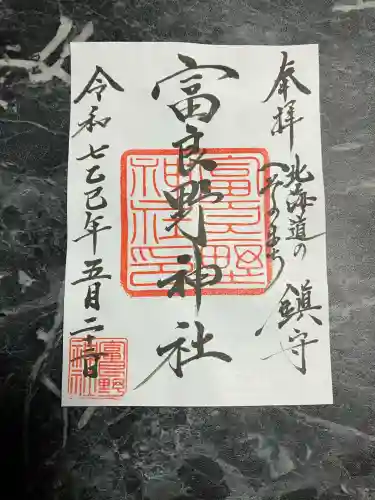 奉拝
北海道の
へそのまち
鎮守
富良野神社
富良野
神社印
令和七乙巳年五月二十日
富良野
神社